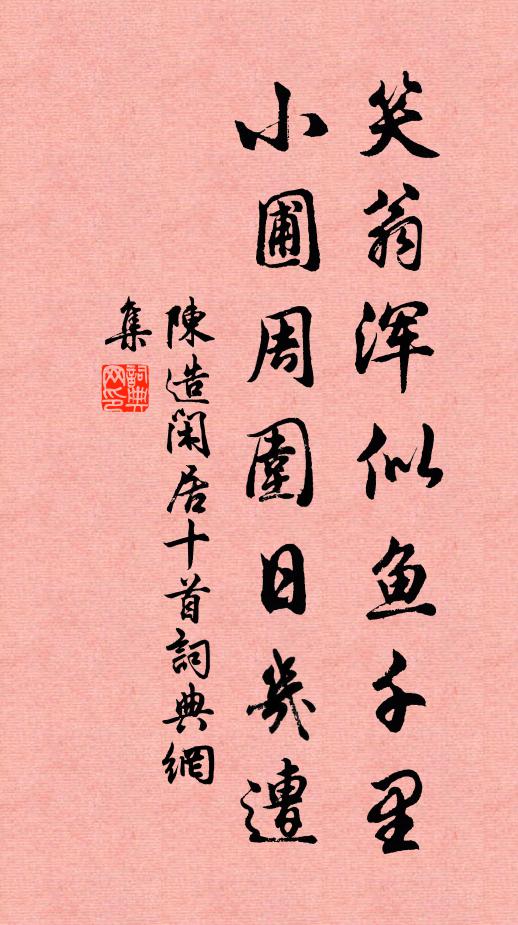 笑翁浑似鱼千里
小圃周围日几遭
陳造閑居十首詞典網
集
詞典网印